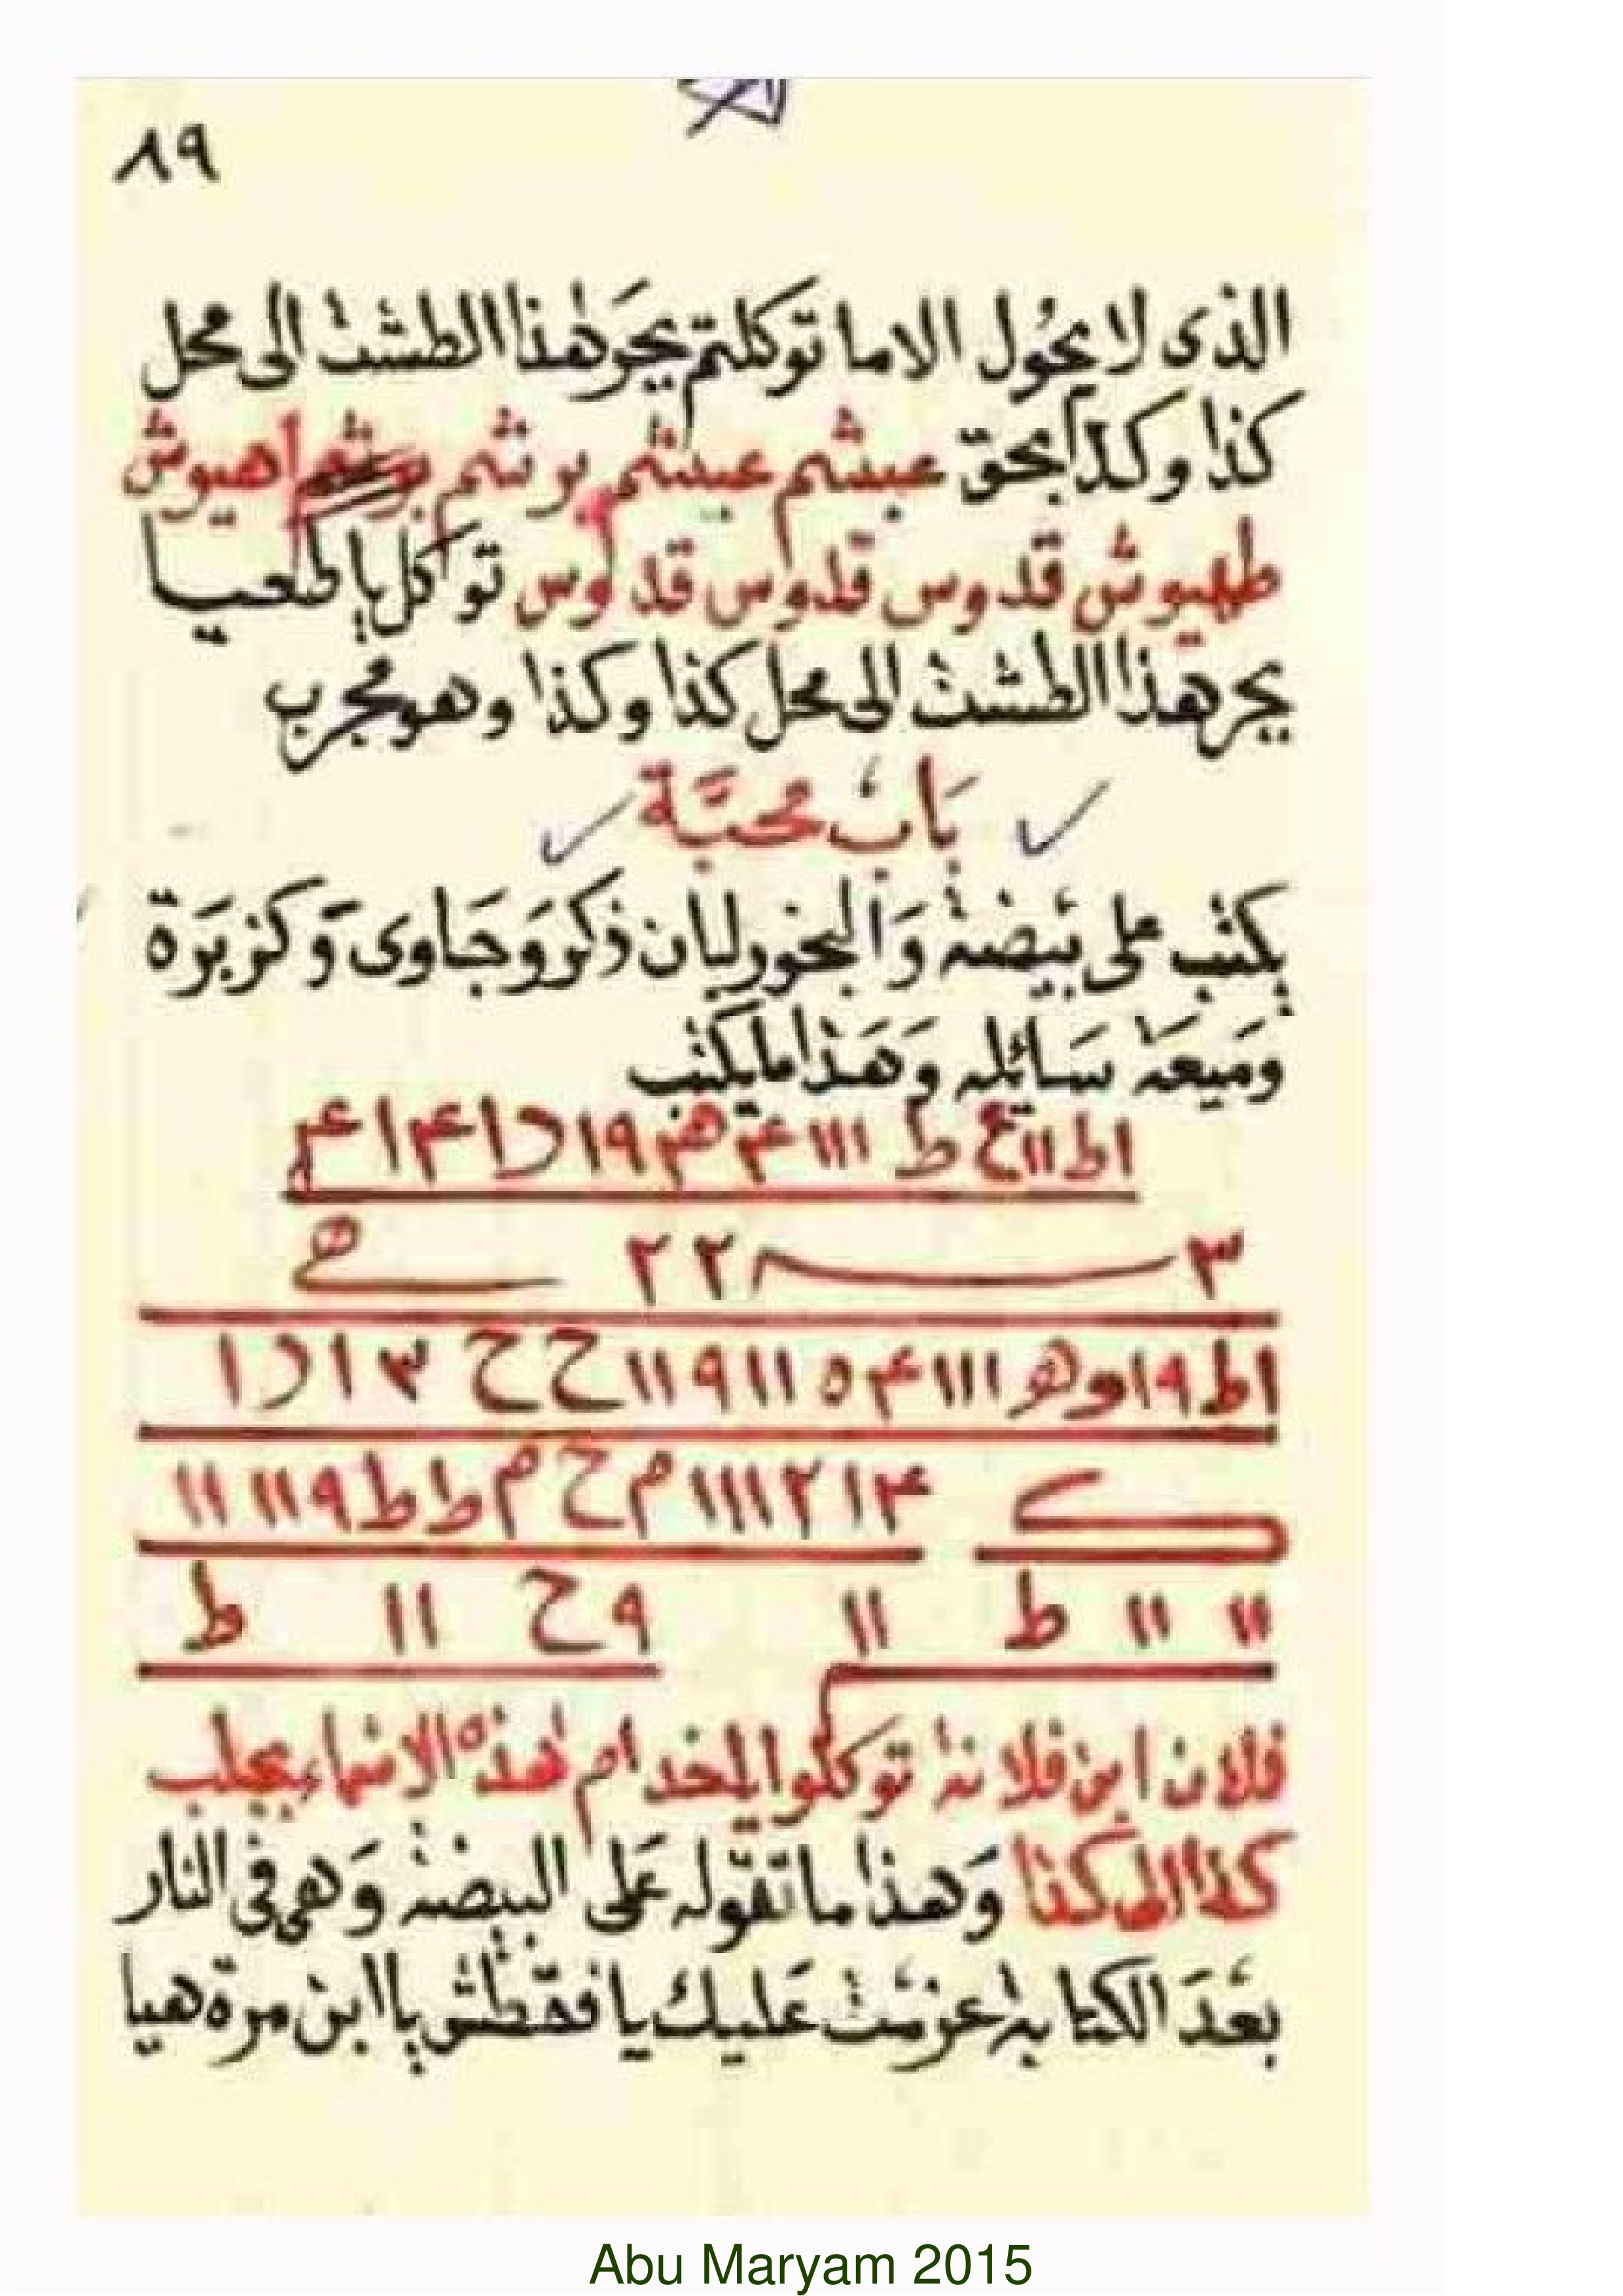 ٨٩
الذى لا يحول الا ما توكلتم يجر هذا الطشت الى محل
كذا وكذا بحق عبشم عبشم برشم برشم اهيوش
طهيوش قدوس قدوس قدوس توكل يا طعيا
يجر هذا الطشت الى محل كذا وكذا وهو مجرب
بَابُ محبَّة
يكتب على بَيضة وَالبخور لبان ذكر وَجَاوى وَكزبَرَة
ومَيعَة سَائله وَهَذا ما يكتب
اط١١ع ط ١١١ ۴ ه م ١٩ د١ ۴ ا ۴
٣ ٢٢ ے
اط ١٩ وه ١١١ ۴ ٥ ١١ ٩ ١١ ح ح ۴ ا د ا
ك ۴ ا ٢ ١١١ م ح م ط ط ٩ ١١ ١١
١١ ١١ ط ١١ ٩ ح ١١ ط
فلان ابن فلانة توكلوا يا خدام هذه الاسماء بجلب
كذا الى كذا وَهذا ما تقوله عَلى البيضة وَهى فى النار
بَعدَ الكتابة عزمت عَليك يا فقطش يا ابن مرة هيا
Abu Maryam 2015